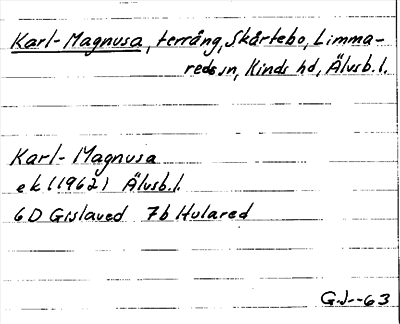 Karl-Magnusa, terräng, Skårtebo, Limma-
reds sn, Kinds hd, Älvsb.l.
Karl-Magnusa
ek (1962) Älvsb.l.
6D Gislaved 7b Hulared
G.J--63